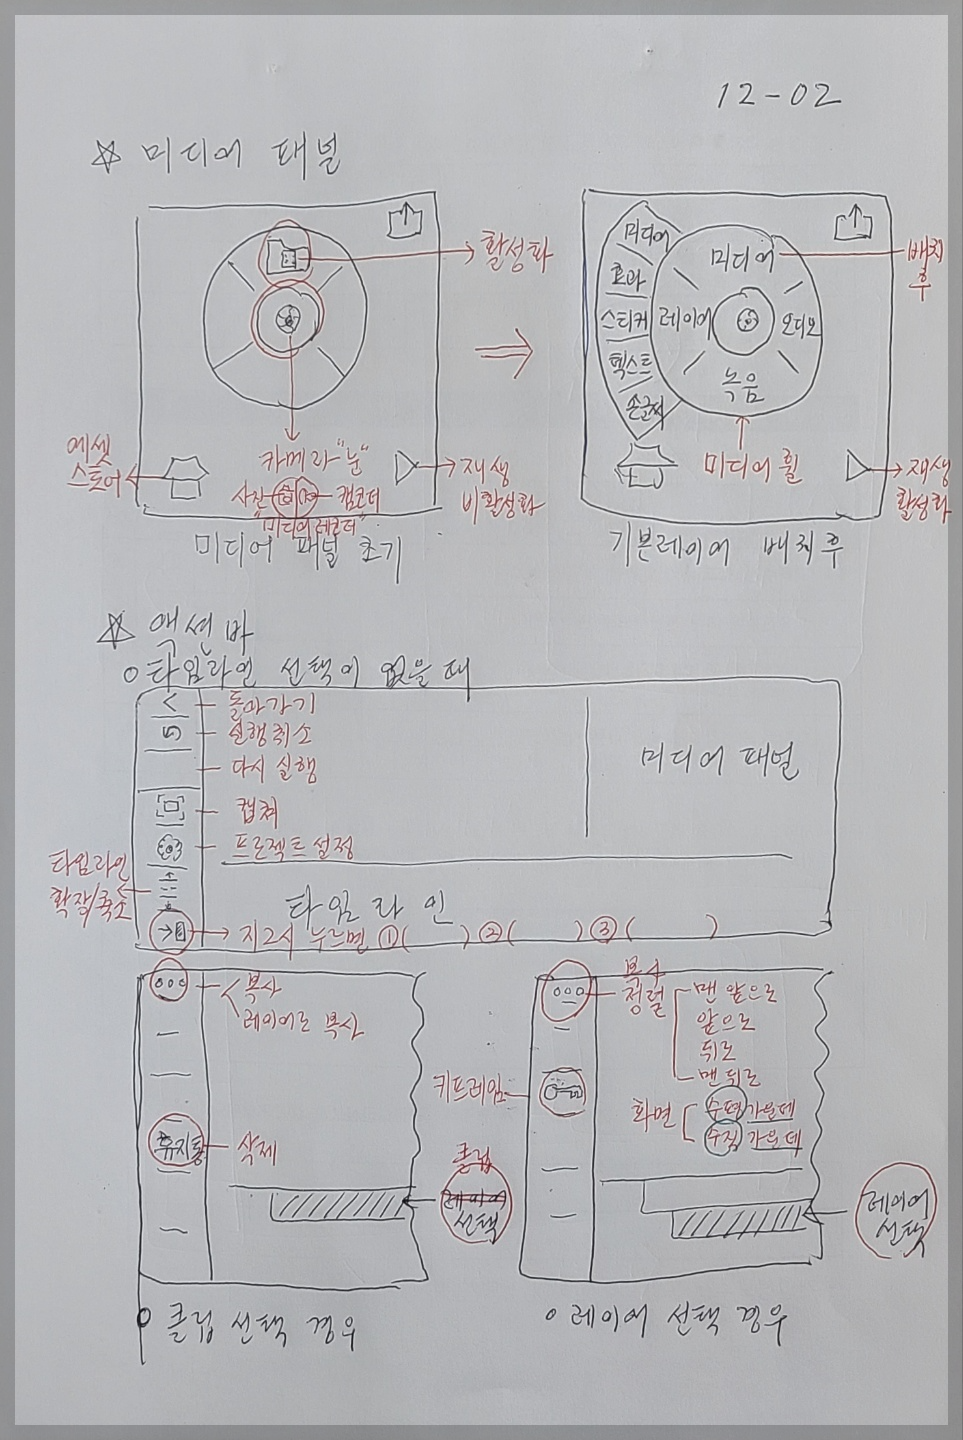 12-02
☆ 미디어 패널
활성화
에셋
스토어
카메라"눈"
사진
캠코더
"미디어레코더"
재생
비활성화
미디어 패널 초기
미디어
효과
스티커
텍스트
손글씨
미디어
레이어
오디오
녹음
배치
후
미디어 휠
재생
활성화
기본레이어 배치후
☆ 액션바
○ 타임라인 선택이 없을 때
돌아가기
실행취소
다시 실행
캡쳐
프로젝트 설정
타임라인
확장/축소
미디어 패널
타임라인
지그시 누르면 ①( ) ②( ) ③( )
복사
레이어로 복사
휴지통
삭제
클립
레이어
선택
○ 클립 선택 경우
복사
정렬
맨 앞으로
앞으로
뒤로
맨 뒤로
키프레임
화면
수평 가운데
수직 가운데
레이어
선택
○ 레이어 선택 경우